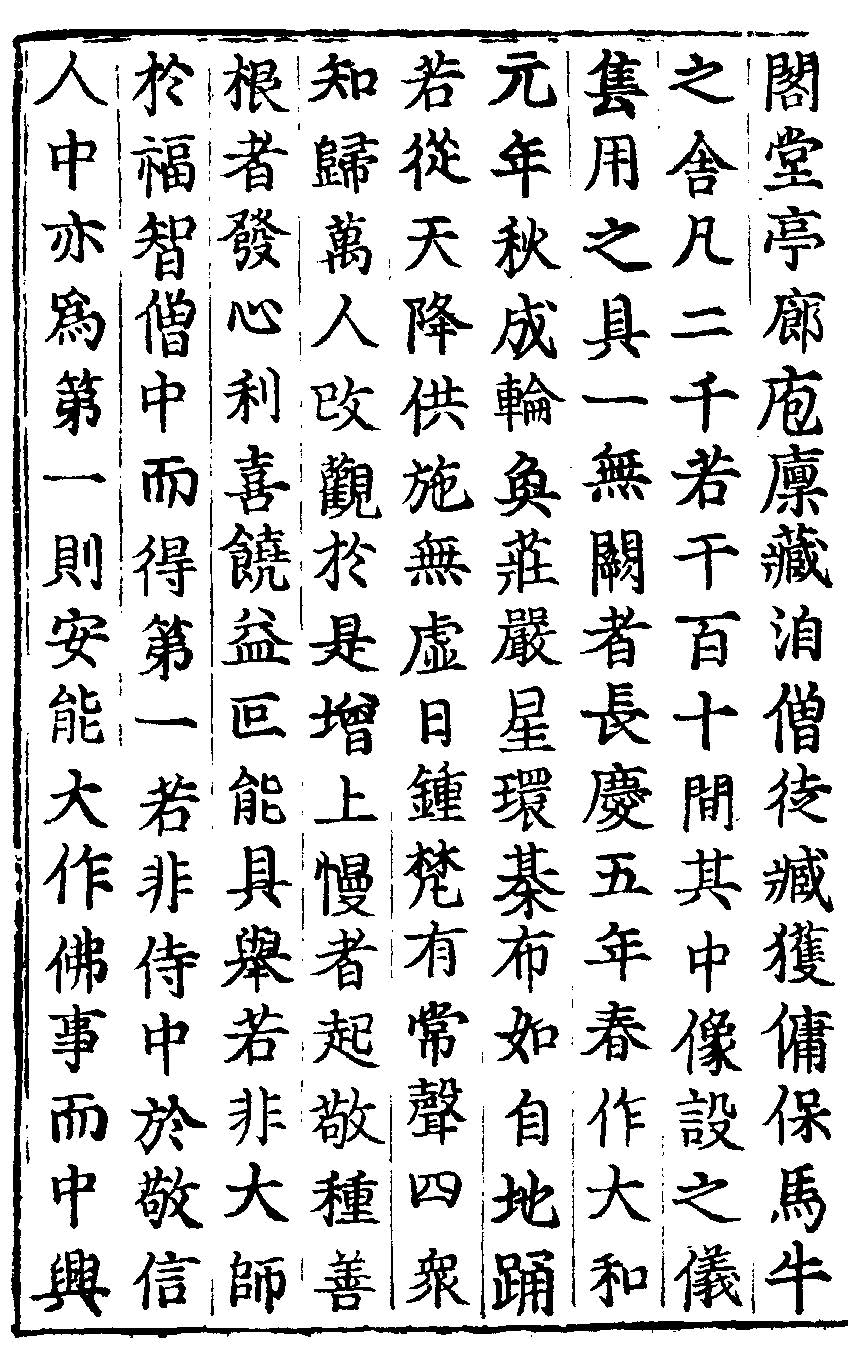 閣堂亭廊庖廩藏洎僧徒臧獲傭保馬牛
之舍凡二千若干百十間其中像設之儀
用之具一無闕者長慶五年春作大和
元年秋成輪奐莊嚴星環棊布如自地踊
若從天降供施無虛日鍾梵有常聲四衆
知歸萬人改觀於是增上慢者起敬種善
根者發心利喜饒益叵能具舉若非大師
於福智僧中而得第一若非侍中於敬信
人中亦爲第一則安能大作佛事而中興